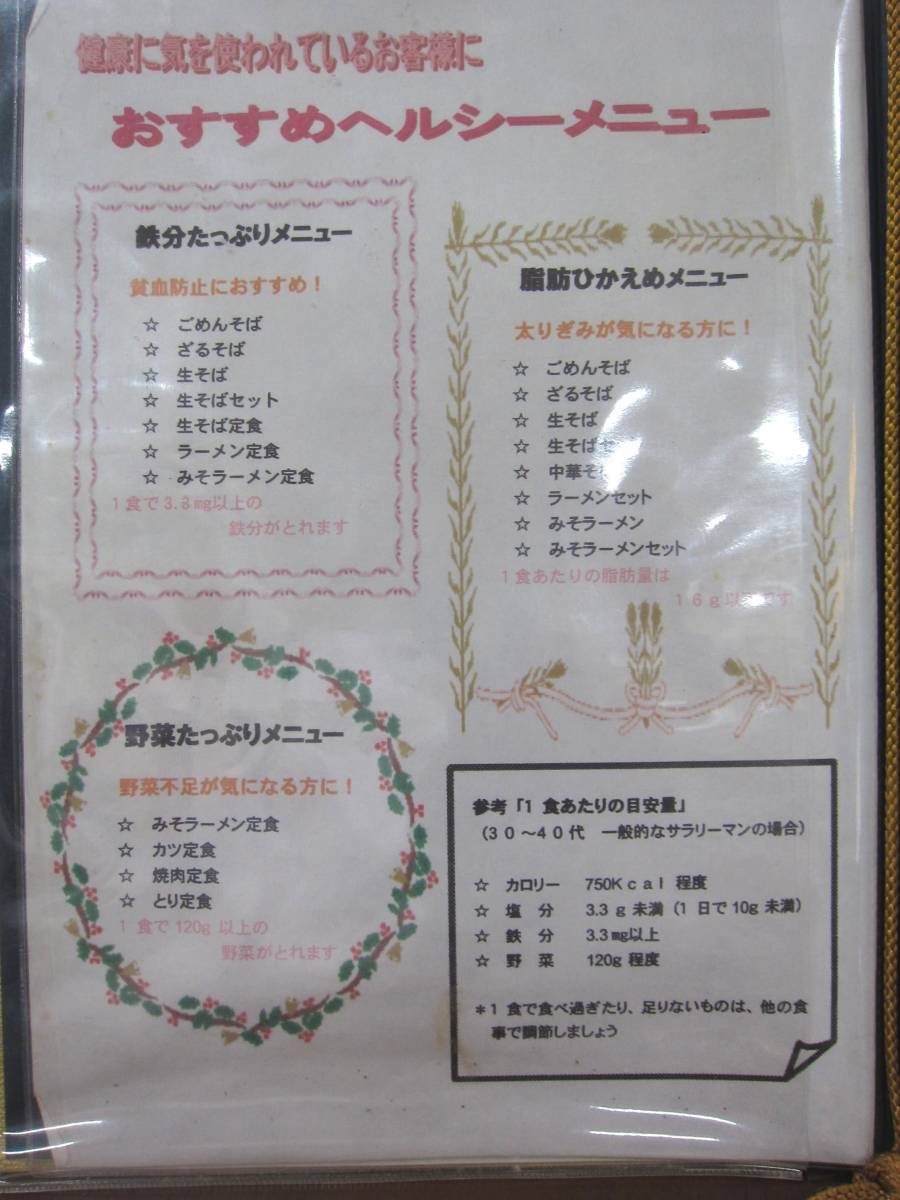 健康に気を使われているお客様に
おすすめヘルシーメニュー
鉄分たっぷりメニュー
貧血防止におすすめ！
☆ ごめんそば
☆ ざるそば
☆ 生そば
☆ 生そばセット
☆ 生そば定食
☆ ラーメン定食
☆ みそラーメン定食
1食で3.3㎎以上の
鉄分がとれます
脂肪ひかえめメニュー
太りぎみが気になる方に！
☆ ごめんそば
☆ ざるそば
☆ 生そば
☆ 生そばセ
☆ 中華そ
☆ ラーメンセット
☆ みそラーメン
☆ みそラーメンセット
1食あたりの脂肪量は
16g以 です
野菜たっぷりメニュー
野菜不足が気になる方に！
☆ みそラーメン定食
☆ カツ定食
☆ 焼肉定食
☆ とり定食
1食で120g以上の
野菜がとれます
参考「1 食あたりの目安量」
（30～40代 一般的なサラリーマンの場合）
☆ カロリー 750Kcal 程度
☆ 塩 分 3.3 g 未満（1 日で 10g 未満）
☆ 鉄 分 3.3㎎以上
☆ 野 菜 120g 程度
＊1 食で食べ過ぎたり、足りないものは、他の食
事で調節しましょう